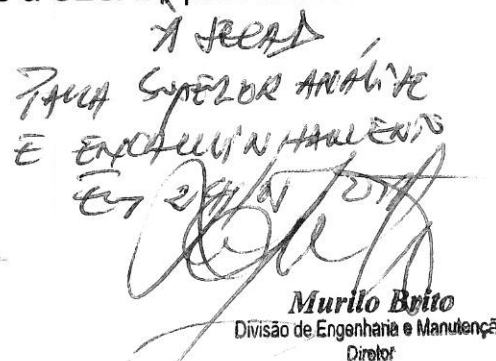 À SECAD
PARA SUPERIOR ANÁLISE
E ENCAMINHAMENTO
Em
Murilo Brito
Divisão de Engenharia e Manutençã
Diretor